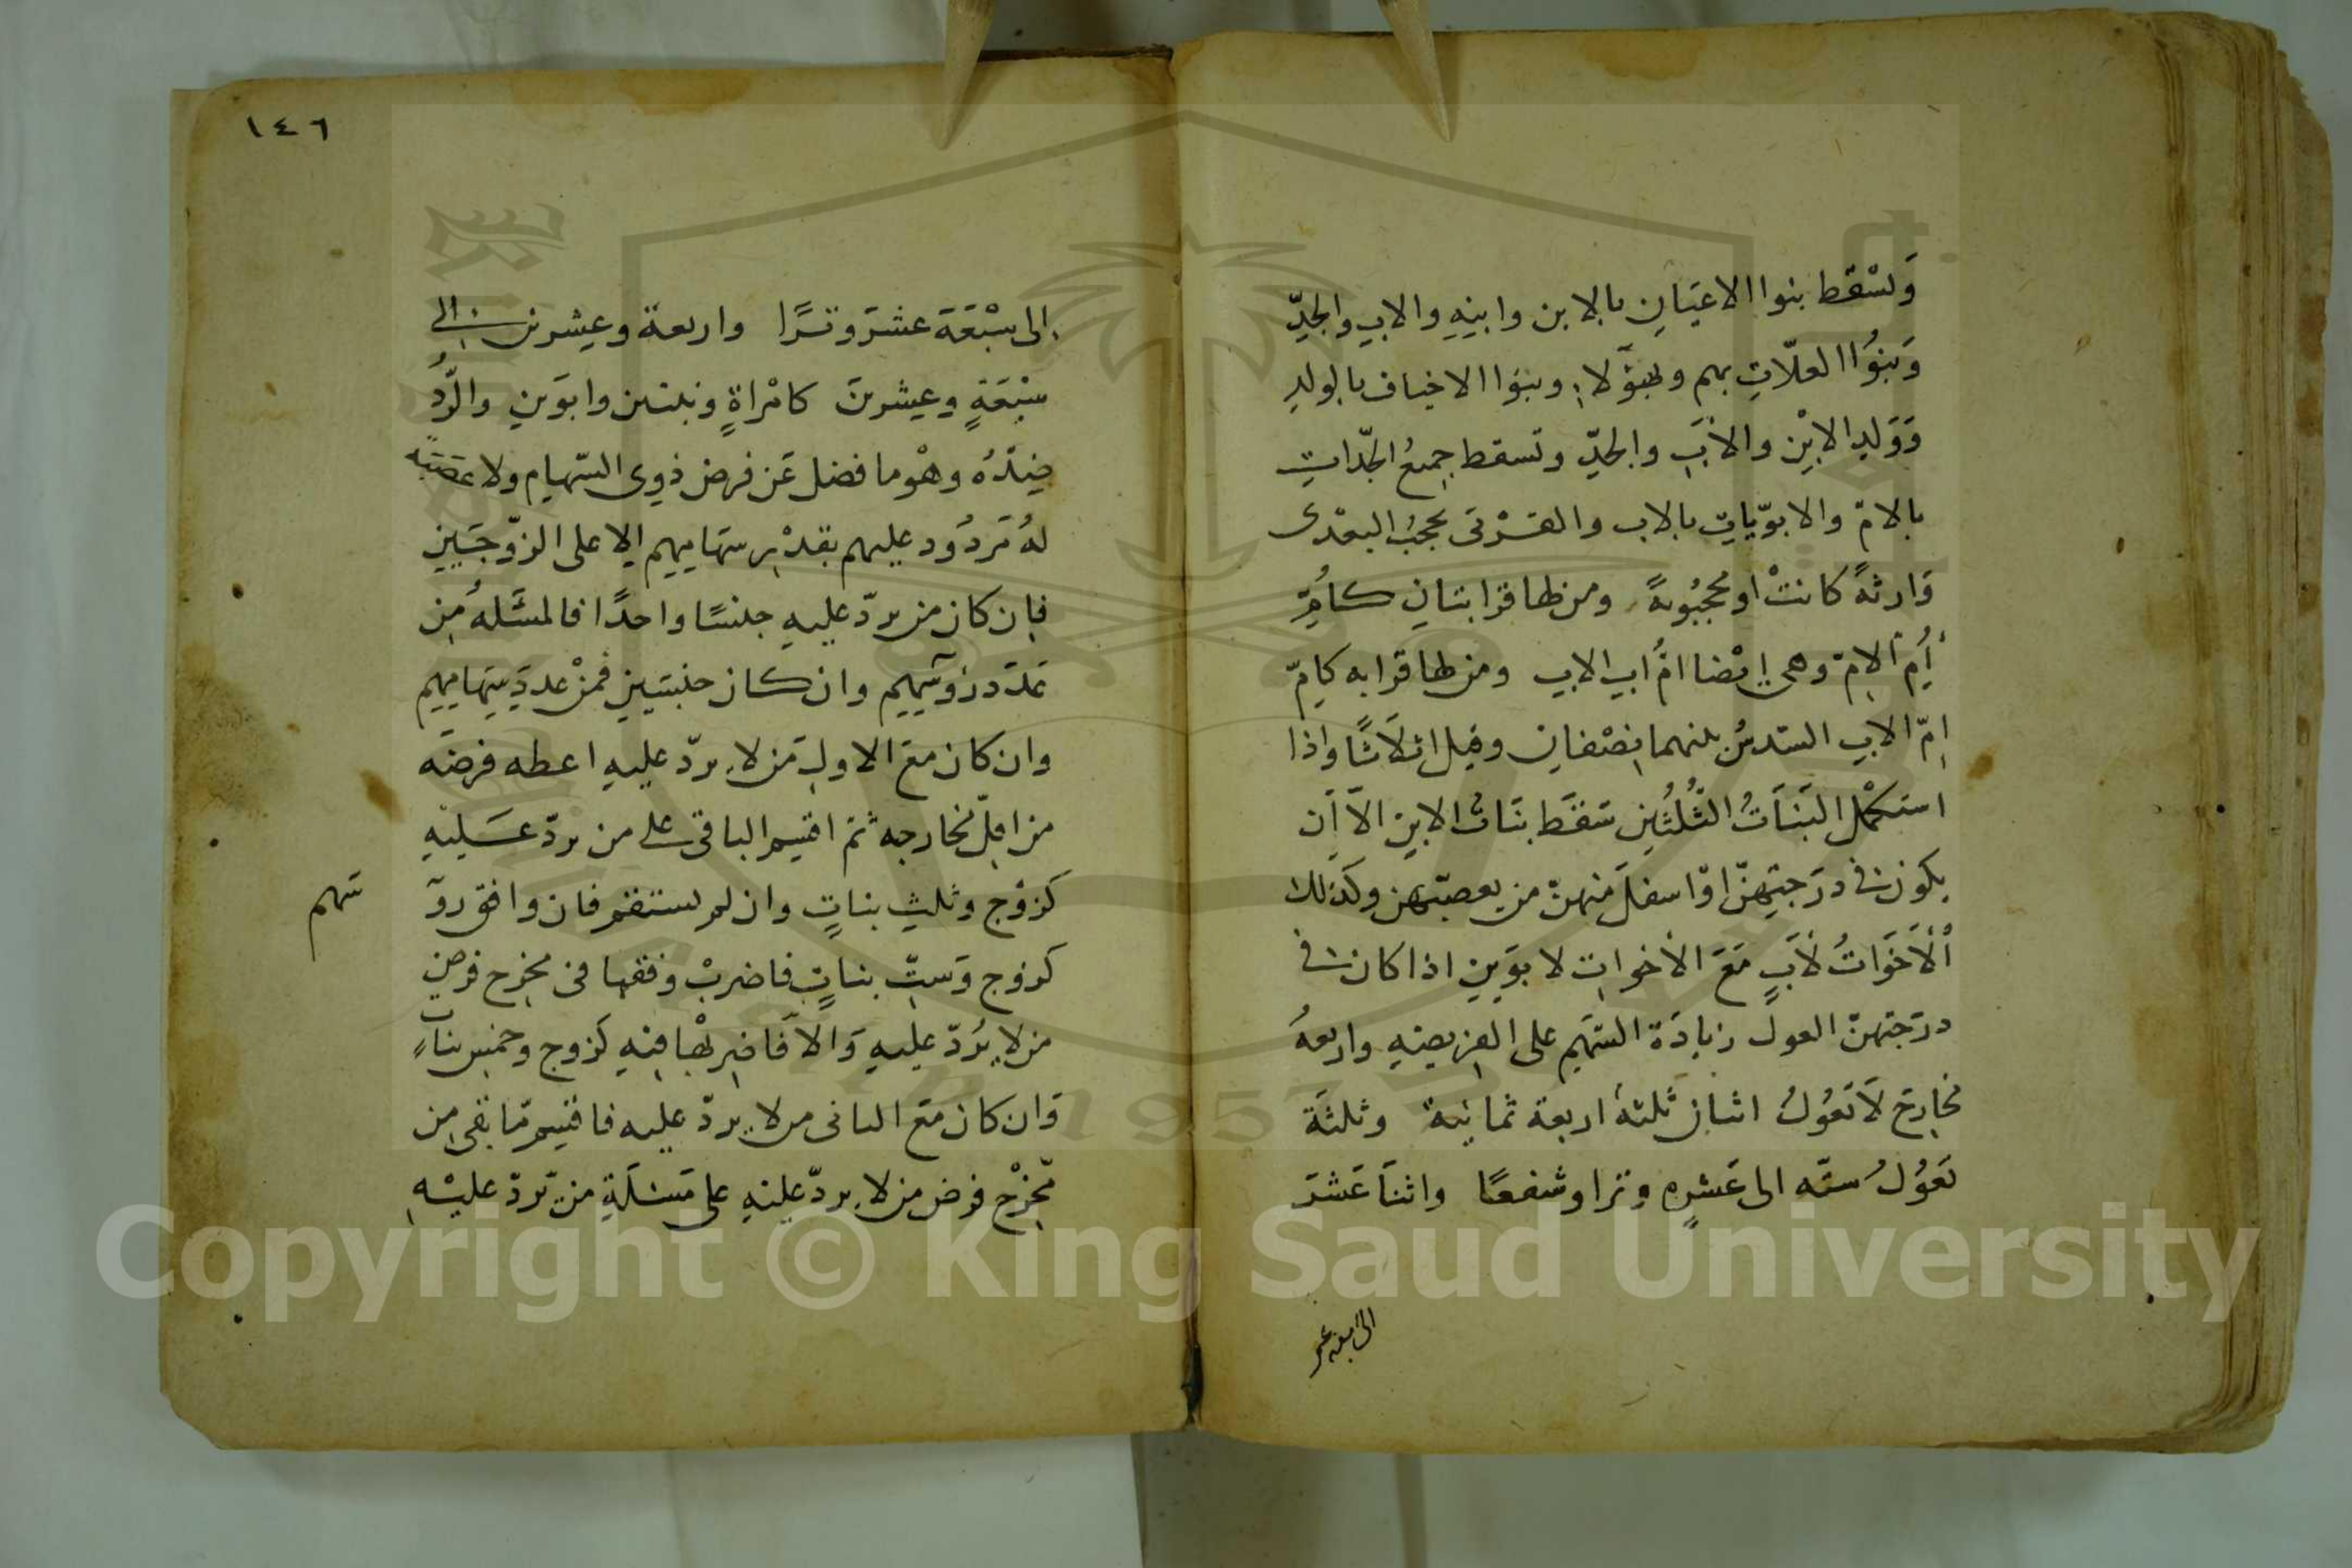 وَتسْقط بنوا الاعيَانِ بالابن وابنِهِ والابِ والجدِّ
وَبنوُا العلّاتِ بهم وبهؤَلاءِ وبنوا الاخياف بالولدِ
وَوَلدِ الابْنِ والاَبَ والجدِّ وتسقط جميعُ الجدّاتِ
بالامّ والابوّياتِ بالاب والقرْبى تحجبُ البعْدى
وَارثةً كانتْ او محجبُوبةً ومن لها قرابتانِ كامِّ
أُمِّ الامّ وهى ايضا امُّ ابِ الابِ ومن لها قرابه كامّ
امّ الابِ السّدسُ بينهما نِصْفانِ وقيل اثلاَثًا واذا
استكمْل البَنَاتُ الثُّلُثَينِ سَقَط بنَاتُ الابنِ الاّ اَن
يكون فى درَجتِهِنّ اوْ اسفلَ مِنهنّ من يعصبّهن وكذلك
اْلاَخَوَاتُ لاَبٍ مَعَ الاَخواتِ لابوَينِ اذا كان فى
درَجتهنّ العول زيادَة السّهَمِ على الفريضةِ واربعةُ
مخارِجَ لاَ تعُوْلُ اثنانِ ثلثةٌ اربعة ثمانية وثلثَة
تعَوُلُ ستّه الى عَشرِه وترا وشفعًا واثنَا عَشَرَ
الى سبعة عشر
١٤٦
الى سبْعَة عشرَ وترًا واربعة وعشرين الى
سبْعَةٍ وعشرينَ كامْراةٍ وبنتين وابوَينِ والرَّدُّ
ضِدّهُ وهْو ما فضل عَن فرض ذوِى السّهام ولا عصَبَة
لهُ مَردُود عليهم بقدْرِ سهَامِهِم الا على الزّوجَينِ
فاِن كان من يردّ عليهِ جنسًا واحدًا فالمسَّلهُ مِن
عَدَد رؤسِهِم وان كان جنسَينِ فمنْ عددِ سِهامِهِم
وان كان معَ الاولِ مَن لا يردّ عليهِ اعطه فرضَه
من اقلّ مخارجه ثمّ اقسِم الباقى على من يردّ عَليهِ
كزوْج وثلثِ بناتٍ وان لم يستقم فان وافق روَ
سَهم
كزوج وَستِّ بناتٍ فاضربْ وفقها فى مخرج فرضِ
من لا يُردّ عليهِ وَالاَّ فَاضرِبْها فيهِ كزوج وخمسِ بناتٍ
وَان كان معَ الثانى من لا يردّ عليه فاقسِم مّا بقى مِن
مّخرْج فرض من لا يردّ عليهِ على مَسئلَةِ من يَردّ عليْهِ
Copyright © King Saud University